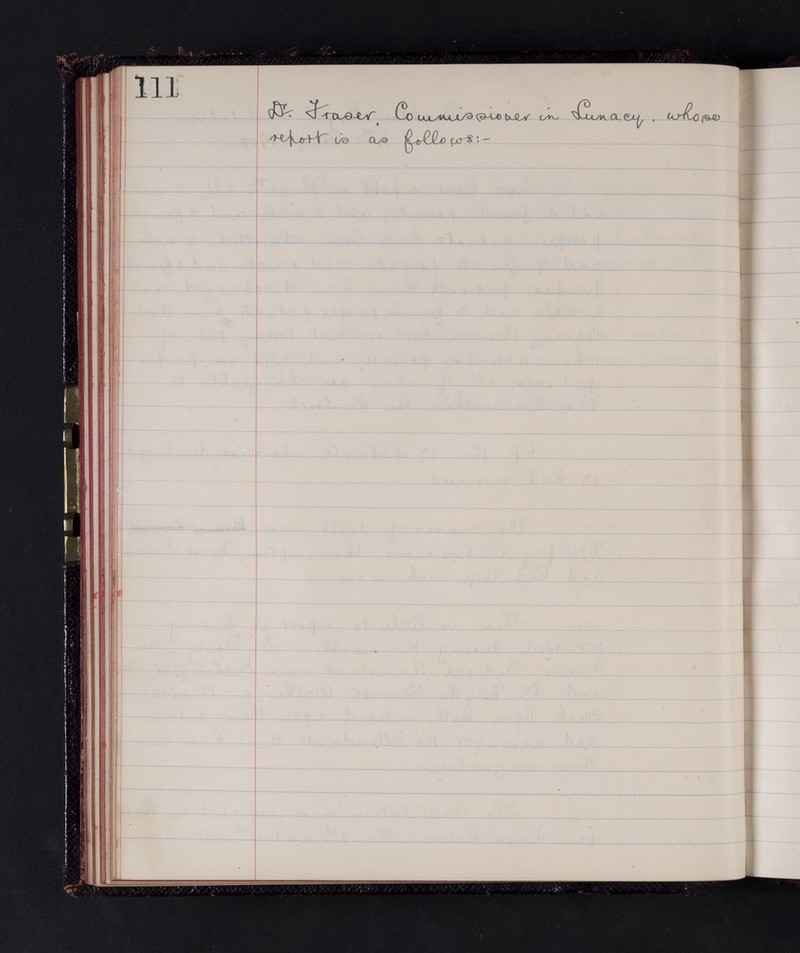 111
Dr. Fraser, Commissioner in Lunacy. whose
report is as follows:-